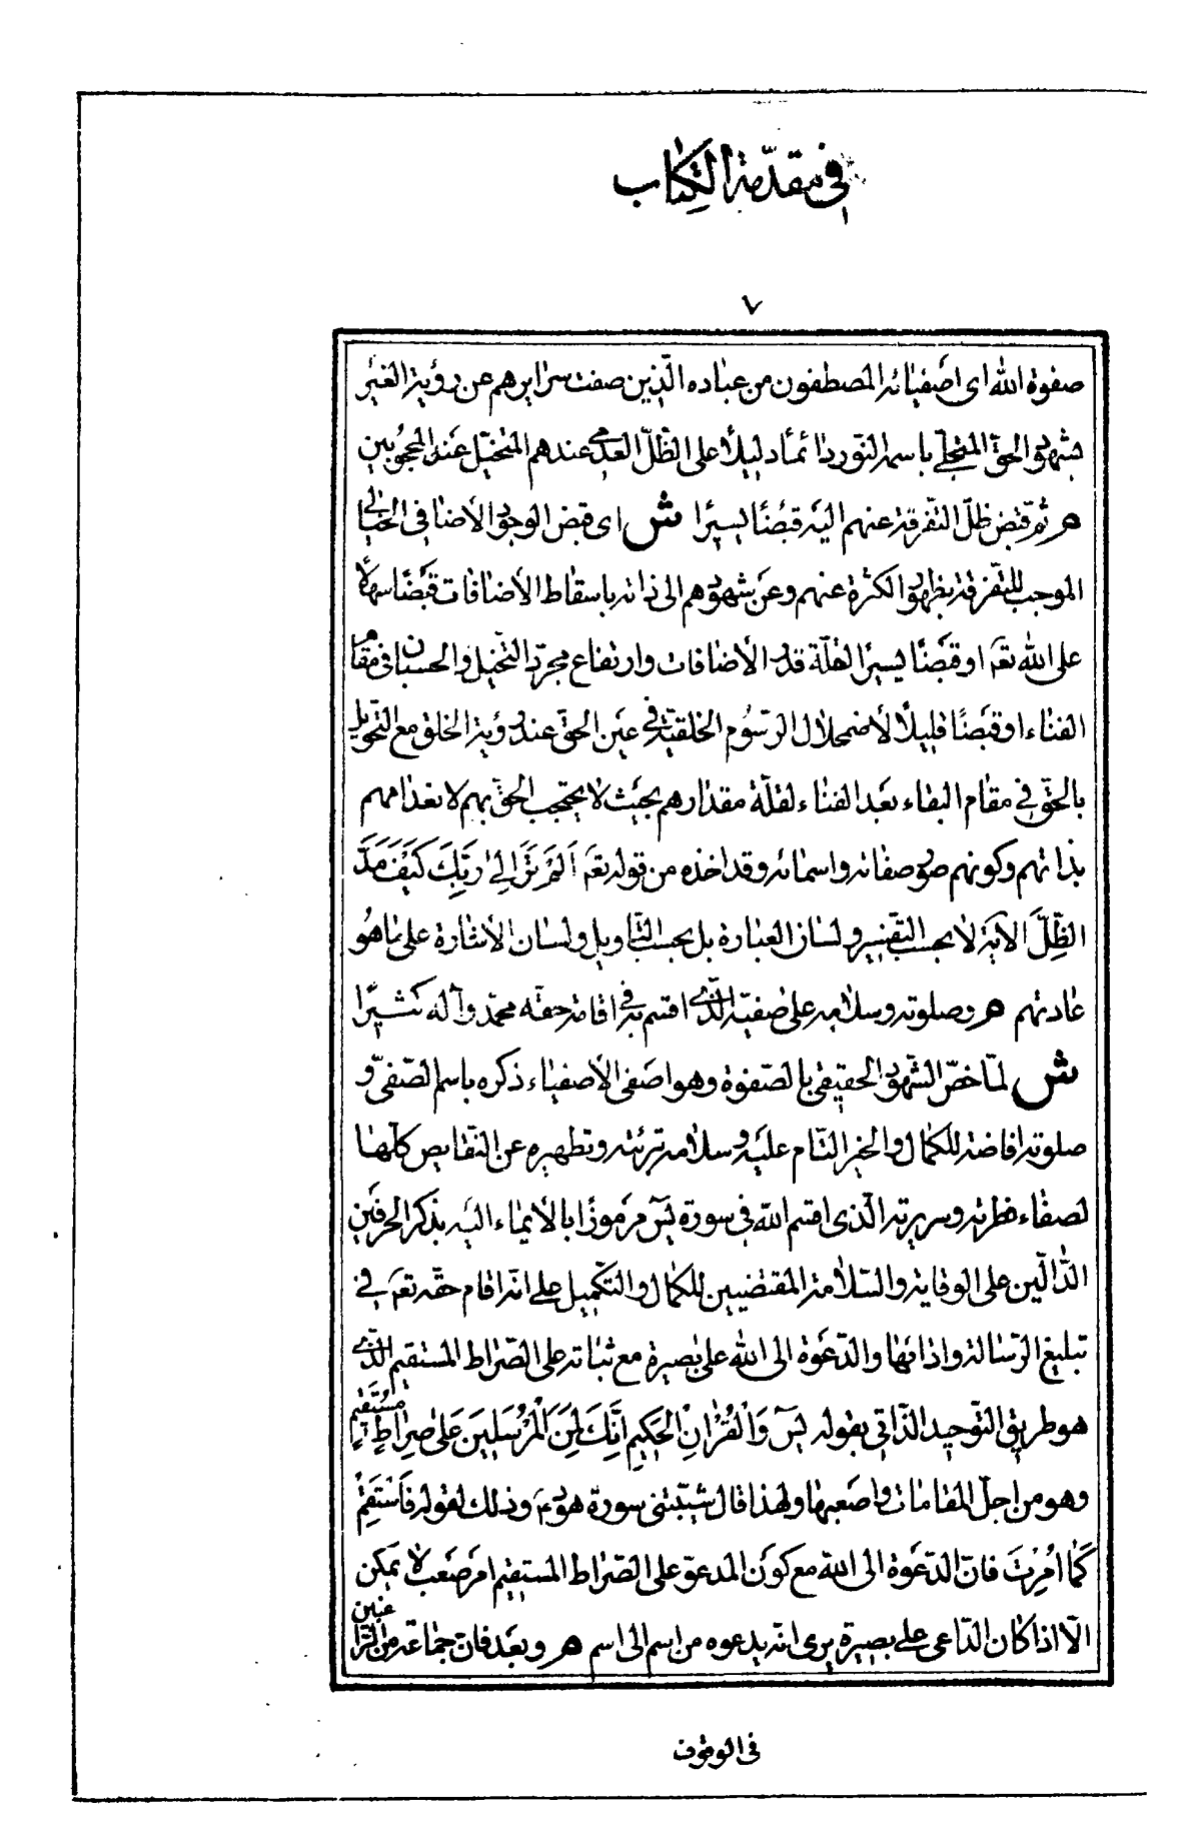 في مقدّمة الكتاب
٧
صفوة الله اى اصفيائه المصطفون من عباده الّذين صفت سرايرهم عن رؤية الغير
بشهود الحقّ المتجلّي باسمه النّور دائماً دليلاً على الظّلّ العدمي عندهم المتخيّل عند المحجوبين
هر ثم قبض ظلّ التفرقة عنهم اليه قبضًا يسيرًا ش اى قبض الوجود الأضافى الخيالي
الموجب للتفرقة بظهور الكثرة عنهم وعن شهودهم الى ذاته باسقاط الأضافات قبضًا سهلًا
على الله تعم او قبضًا يسيرًا لقلّة قدر الأضافات وارتفاع مجرد التخيل والحسبان فى مقام
الفناء او قبضًا قليلًا لأضمحلال الرّسوم الخلقيّة في عين الحق عند رؤية الخلق مع التحويل
بالحقّ في مقام البقاء بعد الفناء لقلّة مقدارهم بحيث لا يحتجب الحقّ بهم لانعدامهم
بذاتهم وكونهم صور صفاته واسمائه وقد اخذه من قوله تعم اَلَمْ تَرَ اِلىٰ رَبِّكَ كَيْفَ مَدَّ
الظِّلَّ الآية لا بحسب التفسير ولسان العبارة بل بحسب التأويل ولسان الأشارة على ما هو
عادتهم هر وصلوته وسلامه على صفيّه الّذي اقسم به في اقامة حقّه محمّد وآله كثيرًا
ش لمّا خصّ الشهود الحقيقى بالصّفوة وهو اصفى الأصفياء ذكره باسم الصّفىّ و
صلوته افاضة للكمال والخير التام عليه وسلامه تبرئته وتطهيره عن النّقايص كلّها
لصفاء فطرته وسريرته الّذى اقسم الله فى سورة يسۤ مرموزًا بالأيماء اليه بذكر الحرفين
الدّالّين على الوقاية والسّلامة المقتضيين للكمال والتكميل على انّه اقام حقّه تعم في
تبليغ الرّسالة واداتها والدّعوة الى الله على بصيرة مع ثباته على الصّراط المستقيم الّذي
هو طريق التّوحيد الذّاتي بقوله يسۤ وَالْقُرْاٰنِ الْحَكيمِ اِنَّكَ لَمِنَ الْمُرْسَلينَ عَلىٰ صِراطٍ مُسْتَقيمٍ
وهو من اجلّ المقامات واصعبها ولهذا قال شيّبتنى سورة هود ء وذلك لقوله فَاسْتَقِمْ
كَمٰا اُمِرْتَ فانّ الدّعوة الى الله مع كون المدعوّ على الصّراط المستقيم امر صعب لا يمكن
الّا اذا كان الدّاعى على بصيرة يرى انّه يدعوه من اسم الى اسم هر وبعد فان جماعة من الرّاغبين
فى الوقوف